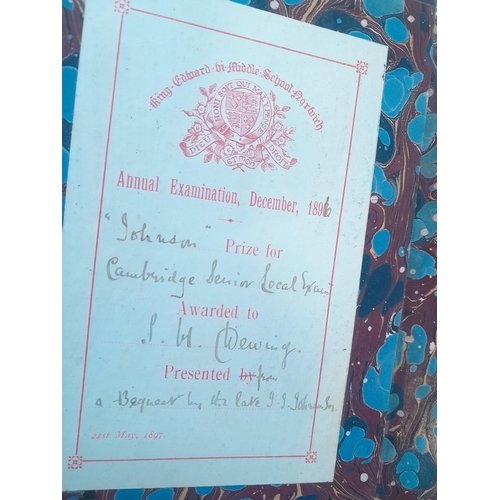 King Edward vi Middle School Norwich
HONI SOIT QUI MAL Y PENSE
DIEU ET MON DROIT
Annual Examination, December, 1896
"Johnson" Prize for
Cambridge Senior Local Exam
Awarded to
S. H. Dewing.
Presented by from
a Bequest by the late J. G. Johnson Esq.
21st May, 1897.